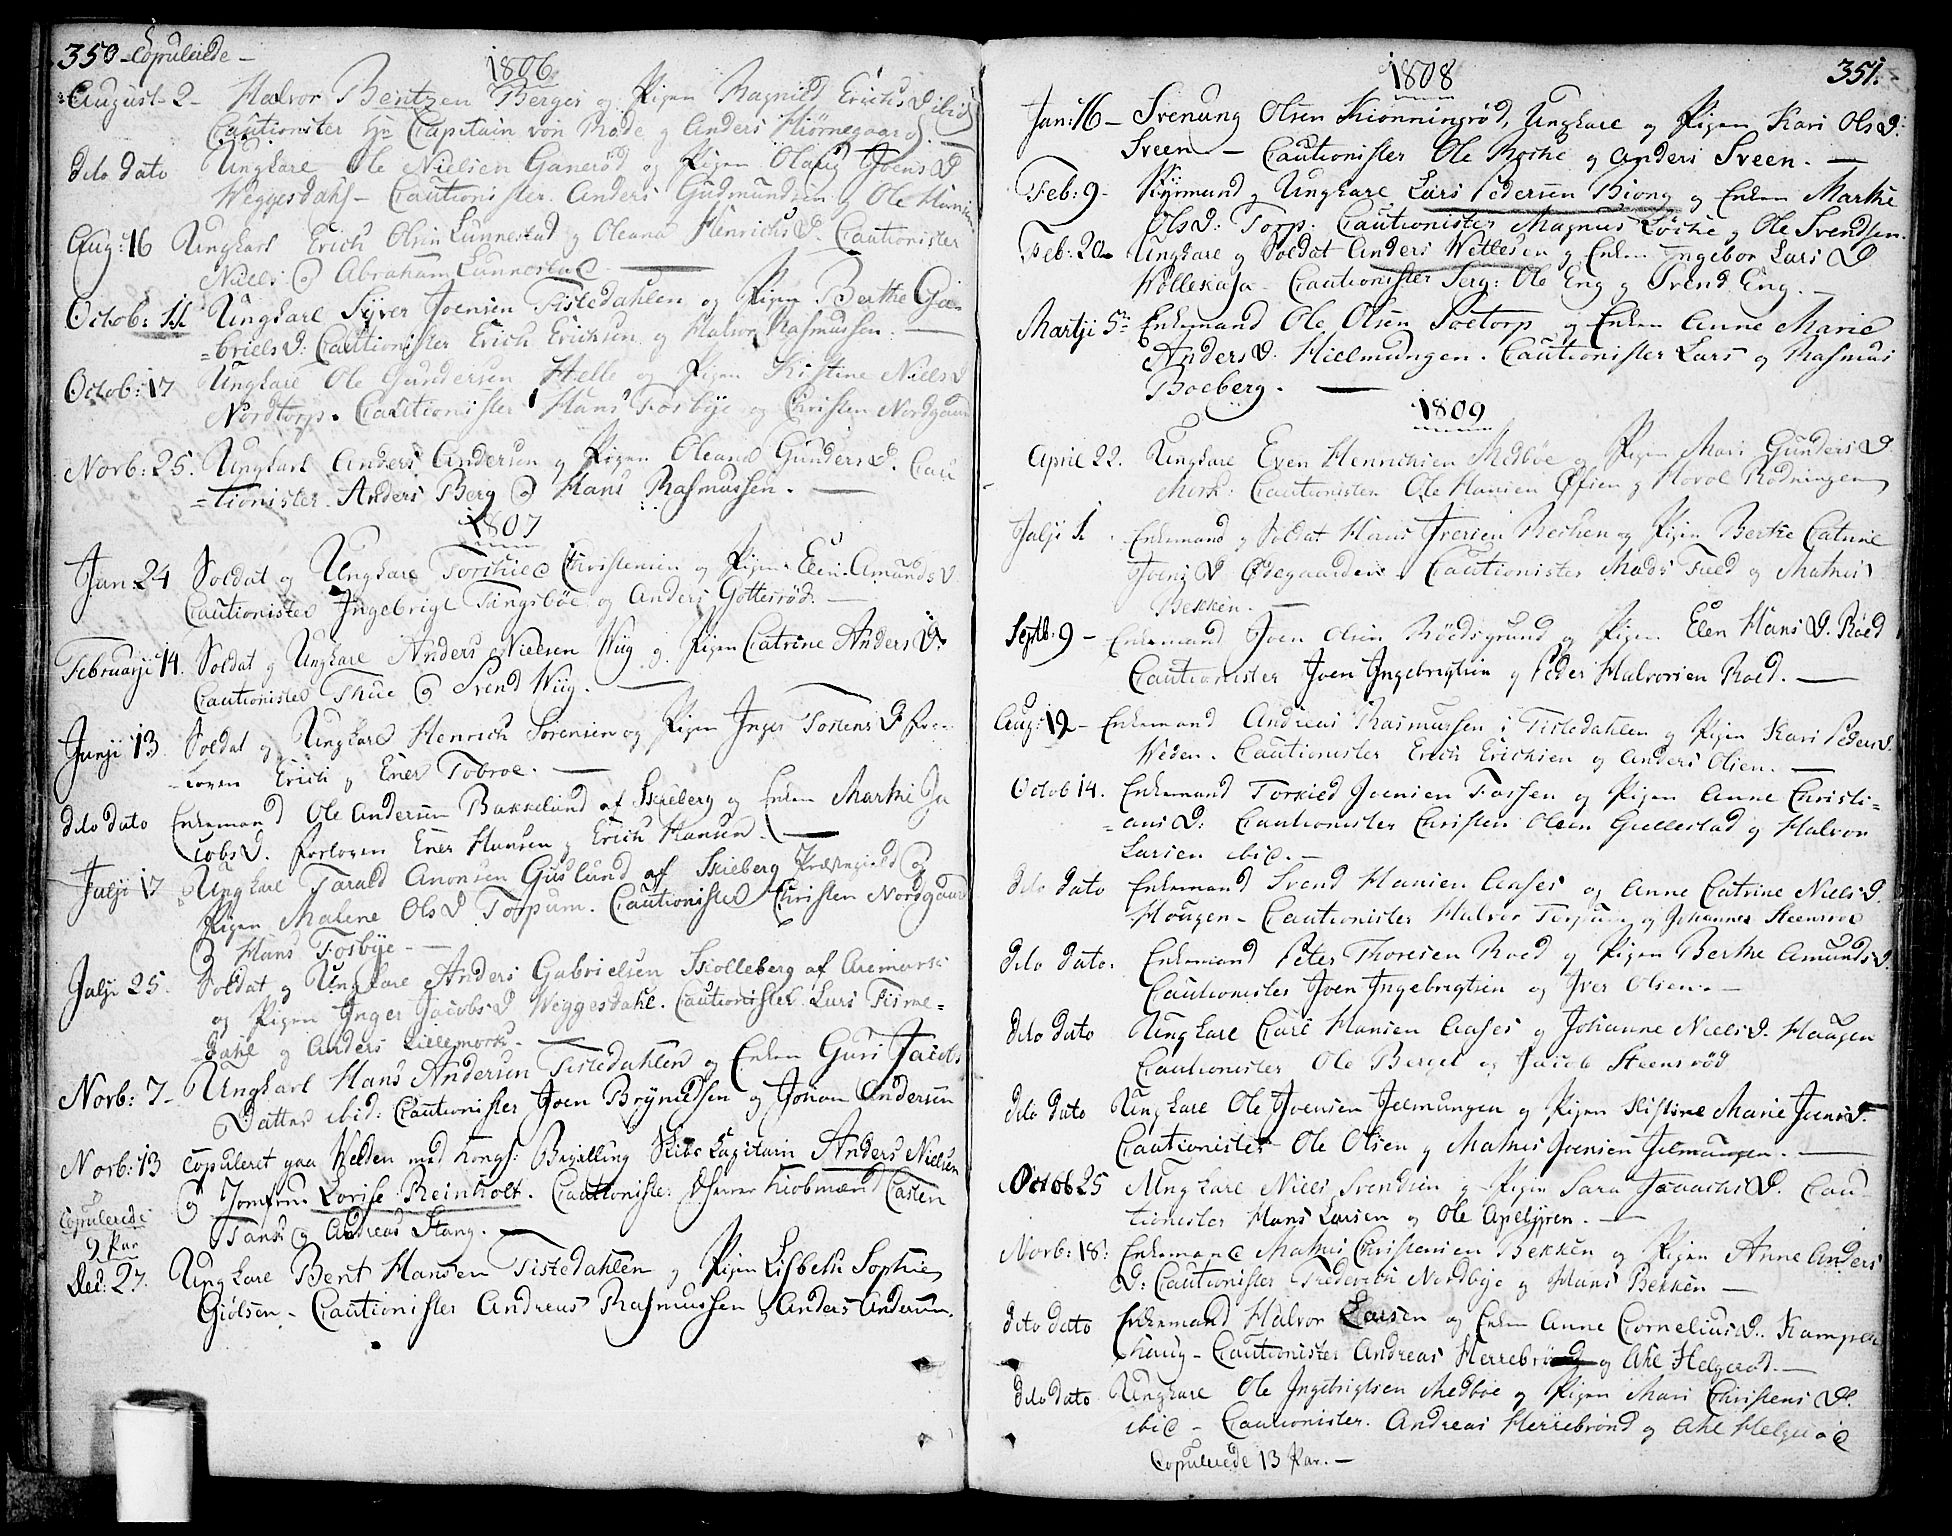 350 - Copulerede -
1806
August 2 - Halvor Bentzen Berger og Pigen Ragnild Erichs D ibid
Cautionister Hr Capitain von Rode og Anders Hiörnegaard
dito dato Ungkarl Ole Nielsen Ganerød og Pigen Olaug Joens D
Weggesdahl - Cautionister. Anders Gudmundsen og Ole
Aug: 16 Ungkarl Erich Olsen Lunnestad og Oleana Henrichs D Cautionister
Niels og Abraham Lunnestad
Octob: 11 Ungkarl Syver Joensen Tistedahlen og Pigen Berthe Ga-
=briels D: Cautionister Erich Erichsen og Halvor Rasmussen. -
Octob: 17 Ungkarl Ole Gundersen Helle og Pigen Kistine Niels D
Nordtorp. Cautionister Hans Fosbye og Christen Nordgaard
Novb: 25. Ungkarl Anders Andersen og Pigen Oleana Gunders D. Cau
=tionister. Anders Berg og Hans Rasmussen. -
1807
Jan 24 Soldat og Ungkarl Torkild Christensen og Pigen Elen Amunds D.
Cautionister Ingebrigt Tungsböe og Anders Gottersöd. -
Februarji 14. Soldat og Ungkarl Anders Nielsen Wiig og Pigen Catrine Anders D.
Cautionister Thue og Svend Wiig. -
Junji 13 Soldat og Ungkarl Henrich Sörensen og Pigen Inger Torsens D. for-
-loren Erich og Ener Tobroe. -
dito dato Enkemand Ole Andersen Bakkelund af Skieberg og Enken Marthe Ja
cobs D. forloren Ener Hansen og Erich Hansen. -
Julji 17 Ungkarl Tarald Anonsen Guslund af Skieberg Præstegield og
Pigen Malene Ols D Torpum. Cautionister Christen Nordgaard
og Hans Fosbye - -
Julji 25. Soldat og Ungkarl Anders Gabrielsen Skolleberg af Aremark
og Pigen Inger Jacobs D Weggesdahl. Cautionister. Lars Tisme-
-dahl og Anders Lillemork. -
Novb: 7 - Ungkarl Hans Andersen Tistedahlen og Enken Guri Jacobs
Datter ibid: Cautionister Joen Brynildsen og Johan Andersen
Novb: 13 copuleret paa Welden med Kongl: Bevilling Skibs Capitain Anders Nielsen
og Jomfru Lovise Reinholt. Cautionister Kiöbmænd Carsten
Tank og Andreas Stang. -
Copulerede
9 Par
Dec: 27. Ungkarl Bent Hansen Tistedahlen og Pigen Lisbeth Sophie
Giölsen - Cautionister Andreas Rasmussen og Anders Andersen.
351.
1808
Jan: 16 - Svenung Olsen Kionningsöd, Ungkarl og Pigen Kari Ols D:
Sveen - Cautionister Ole Röske og Anders Sveen. -
Feb: 9 - og Ungkarl Lars Pedersen Biong og Enken Marthe
Ols D: Torp. Cautionister Magnus Löske og Ole Svendsen.
Feb: 20 Ungkarl og Soldat Anders Wetlesen og Enken Ingebor Lars D
Wollekasa - Cautionister Serg: Ole Eng og Svend Eng. -
Martji 5 Enkemand Ole Olsen Soetorp og Enken Anne Marie
Anders D. Hielmungen. Cautionister Lars og Rasmus
Boeberg. -
1809
April 22. Ungkarl Even Henrichsen Medböe og Pigen Mari Gunders D.
Mork. Cautionister Ole Hansen Öfien og Hovol Rödningen
Julji 1. Enkemand og Soldat Hans Iversen Bechen og Pigen Berthe Catrine
Joens D Ödegaarden. Cautionister Mads Field og Mathis
Bekken. -
Septb: 9 - Enkemand Joen Olsen Röedsgrund og Pigen Elen Hans D. Röed
Cautionister Joen Ingebrigtsen og Peder Halvorsen Roed. -
Aug: 12 - Enkemand Andreas Rasmussen i Tistedahlen og Pigen Kari Peders D.
Weden. Cautionister Erich Erichsen og Anders Olsen. -
Octob 14. Enkemand Torkied Joensen Fossen og Pigen Anne Christi=
=ans D: Cautionister Christen Olsen Giellestad og Halvor
Larsen ibid. -
dito dato Enkemand Svend Hansen Aases og Anne Catrine Niels D.
Hougen - Cautionister Halvor Torpum og Johannes Steensröd
dito dato. Enkemand Peter Thoresen Roed og Pigen Berthe Amunds D.
Cautionister Joen Ingebrigtsen og Iver Olsen. -
dito dato Ungkarl Carl Hansen Aases og Johanne Niels D. Haugen
Cautionister Ole Berger og Jacob Steensröd
dito dato Ungkarl Ole Joensen Jelmungen og Pigen Kistine Marie Joens D.
Cautionister Ole Olsen og Mathis Joensen Jelmungen. -
Octob 25 Ungkarl Niels Svendsen og Pigen Sara Isaachs D. Cau-
tionister Hans Larsen og Ole Apeljyren. -
Novb: 18. Enkemand Mathis Christensen Bekken og Pigen Anne Anders
D: Cautionister Frederich Nordbye og Hans Bekken -
dito dato Enkemand Halvor Larsen og Enken Anne Cornelius D. Kampen
haug - Cautionister Andreas Herrebrö og Ahl Helgeröd. -
dito dato Ungkarl Ole Ingebrigtsen Medböe og Pigen Mari Christens D.
ibid - Cautionister. Andreas Herrebrönd og Ahl Helgeröd
Copulerede 13 Par. -